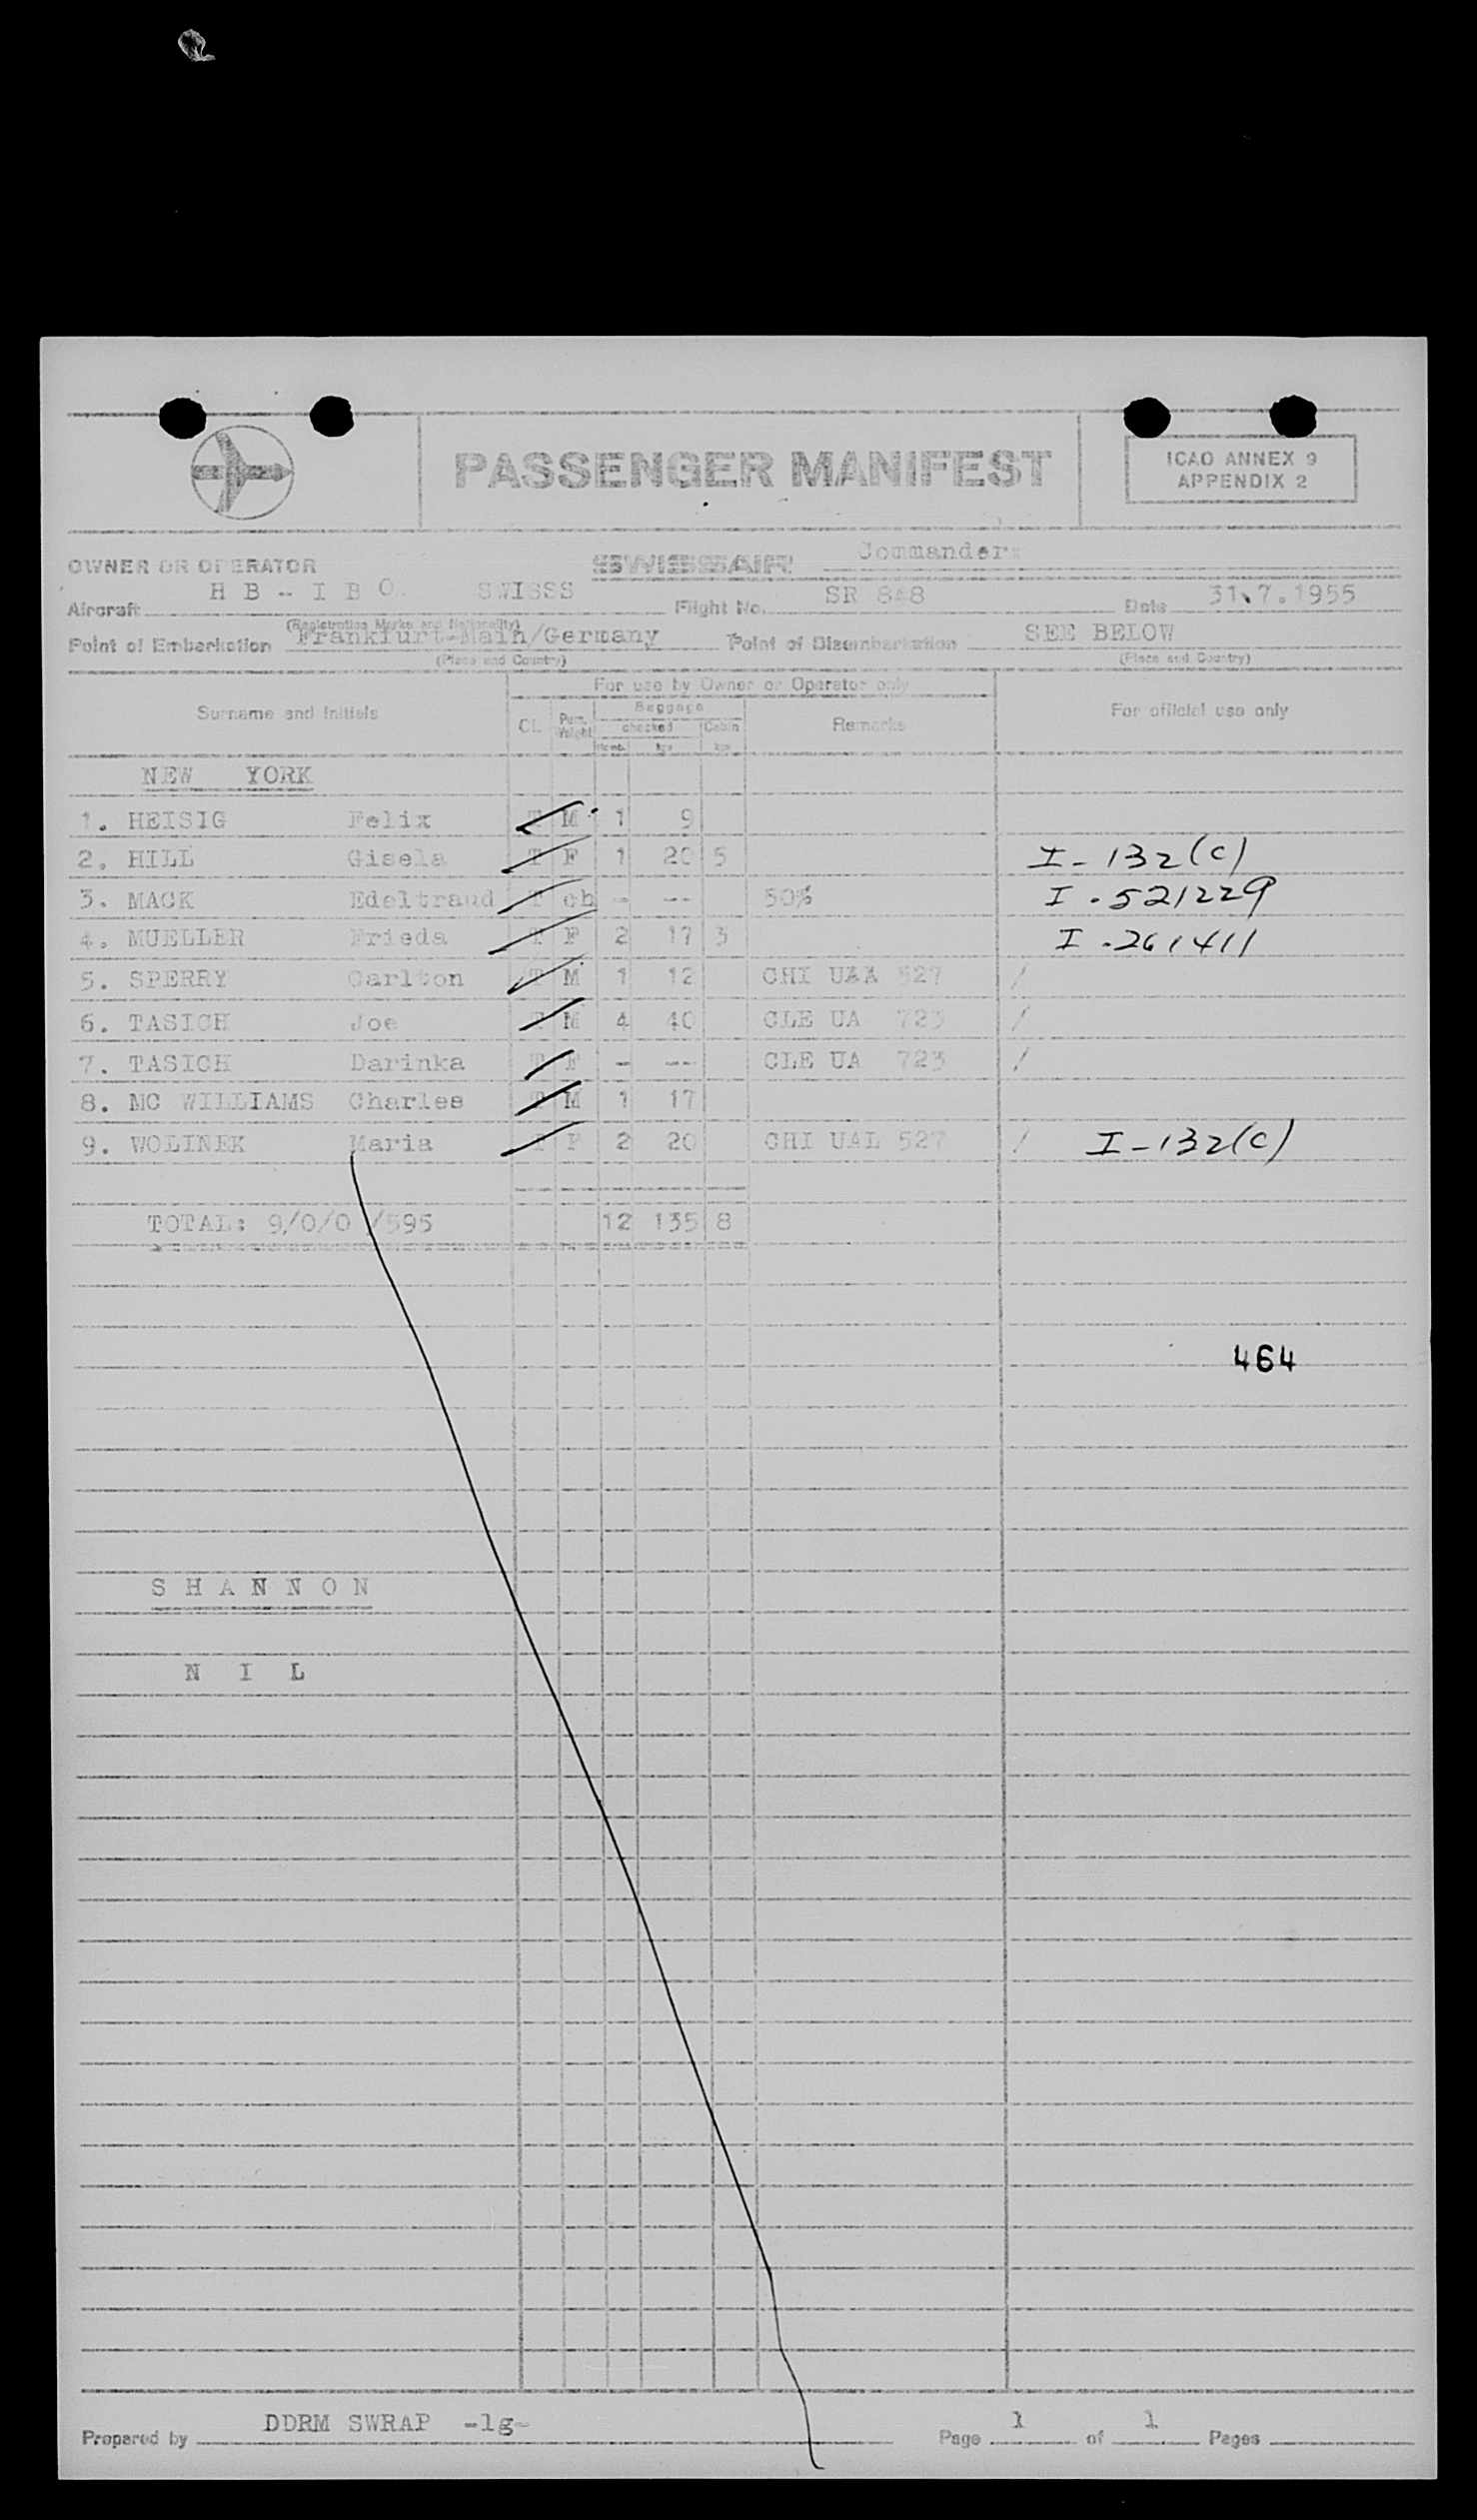 PASSENGER MANIFEST
ICAO ANNEX 9
APPENDIX 2
OWNER OR OPERATOR SWISSAIR Commander
Aircraft H B - I B O. SWISSS Flight No. SR 8 8 Date 31.7.1955
(Registration Marks and Nationality)
Point of Embarkation Frankfurt-Main/Germany Point of Disembarkation SEE BELOW
(Place and Country) (Place and Country)
For use by Owner or Operator only
Surname and Initials CL. Baggage Remarks For official use only
checked Cabin
kgs kgs
NEW YORK
1. HEISIG Felix T M 1 9
2. HILL Gisela T F 1 20 5 I-132(c)
3. MACK Edeltraud T ch - -- 50% I-521229
4. MUELLER Frieda T F 2 17 3 I-261411
5. SPERRY Carlton T M 1 12 CHI UAA 527 /
6. TASICH Joe T M 4 40 CLE UA 723 /
7. TASICH Darinka T F - -- CLE UA 723 /
8. MC WILLIAMS Charles T M 1 17
9. WOLINEK Maria T F 2 20 CHI UAL 527 / I-132(c)
TOTAL: 9/0/0 /595 12 135 8
464
S H A N N O N
N I L
Prepared by DDRM SWRAP -lg- Page 1 of 1 Pages